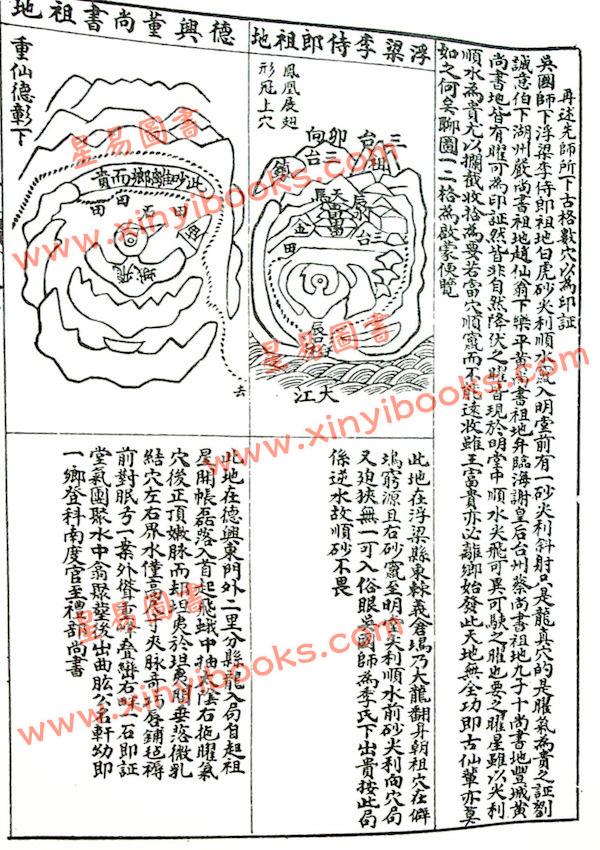 再述先師所下古格數穴以為印証
吳國師下浮梁李侍郎祖地白虎砂尖利順水竄入明堂前有一砂尖利斜射只是龍真穴的是曜氣為貴之証劉
誠意伯下湖州嚴尚書祖地趙仙翁下樂平黃尚書祖地并臨海謝皇后台州蔡尚書祖地九子十尚書地豐城黃
尚書地皆有曜可為印証然皆非自然降伏之曜皆現於明堂中順水尖飛可異可駭之曜也要之曜星雖以尖利
順水為貴尤以攔截收拾為要若當穴順竄而不能遠收雖王富貴亦必離鄉始發此天地無全功即古仙輩亦莫
如之何矣聊圖一二格為啟蒙便覽
浮梁李侍郎祖地
鳳凰展翅
形冠上穴
三台
祖
卯向
三台
鎮
辰
天
金
田
台
大江
此地在浮梁縣東隸義倉塢乃大龍翻身朝祖穴在僻
塢窮源且右砂竄至明堂尖利順水前砂尖利向穴局
又迫狹無一可入俗眼吳國師為李氏下出貴按此局
係逆水故順砂不畏
德興董尚書祖地
重仙德彰下
此砂離鄉而貴
田
正
田
金
去
此地在德興東門外二里分縣龍入局自起祖
星開帳磊落入首起飛蛾中抽太陰右拖曜氣
穴後正頂嫩脉而却坦夷於坦夷間垂落微乳
結穴左右界水僅高尺寸夾脉奇巧唇鋪毡褥
前對眠弓一案外聳高峰叠巒右畔一石即証
堂氣團聚水中翕聚塟後出曲肱公名軒幼即
一鄉登科南度官至禮部尚書
星易圖書
www.xinyibooks.com
星易圖書
www.xinyibooks.com
星易圖書
www.xinyibooks.com
星易圖書
www.xinyibooks.com